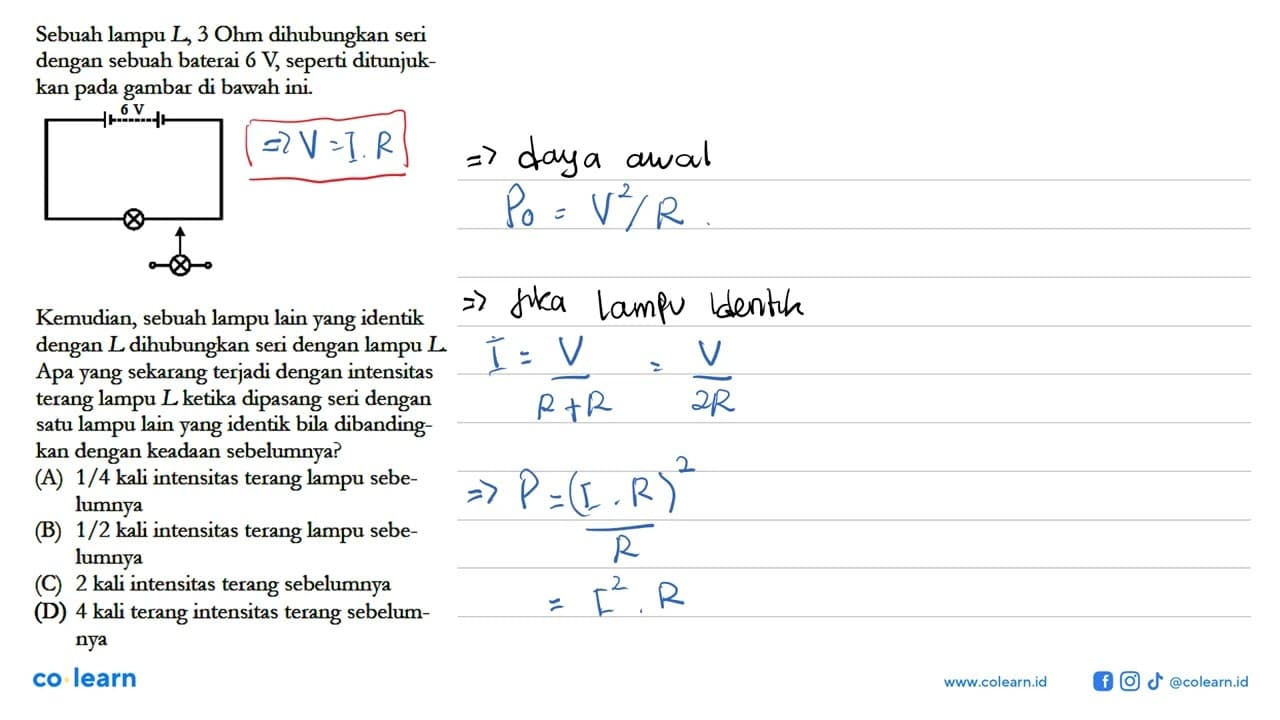 Sebuah lampu L, 3 Ohm dihubungkan seri
dengan sebuah baterai 6 V, seperti ditunjuk-
kan pada gambar di bawah ini.
6 V
=> V = I . R
Kemudian, sebuah lampu lain yang identik
dengan L dihubungkan seri dengan lampu L.
Apa yang sekarang terjadi dengan intensitas
terang lampu L ketika dipasang seri dengan
satu lampu lain yang identik bila dibanding-
kan dengan keadaan sebelumnya?
(A) 1/4 kali intensitas terang lampu sebe-
lumnya
(B) 1/2 kali intensitas terang lampu sebe-
lumnya
(C) 2 kali intensitas terang sebelumnya
(D) 4 kali terang intensitas terang sebelum-
nya
=> daya awal
P0 = V²/R .
=> jika lampu identik
I = V / R + R = V / 2R
=> P = (I . R)² / R
= I² . R
co learn
www.colearn.id
@colearn.id